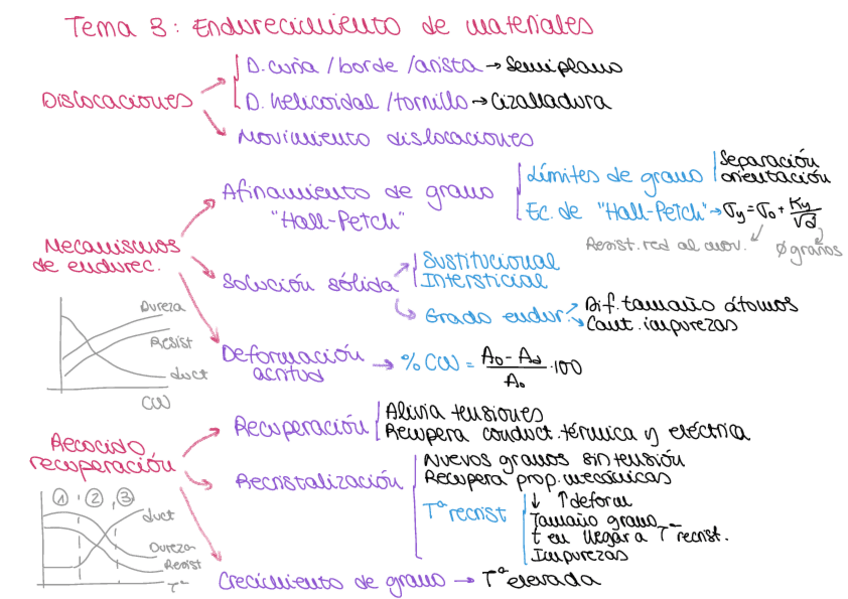 Tema 3: Endurecimiento de materiales
Dislocaciones
D. cuña / borde / arista → Semiplano
D. helicoidal / tornillo → Cizalladura
Movimiento dislocaciones
Mecanismos
de endurec.
Afinamiento de grano
"Hall-Petch"
Límites de grano
Separación
orientación
Ec. de "Hall-Petch" → σy = σ0 + Ky/√d
Resist. red al mov.
Ø granos
Solución sólida
Sustitucional
Intersticial
Grado endur.
Dif. tamaño átomos
Cant. impurezas
Deformación
acritud
→ % CW = (A0 - Ad)/A0 · 100
Dureza
Resist
duct
CW
Recocido
recuperación
Recuperación
Alivia tensiones
Recupera conduct. térmica y eléctrica
Recristalización
Nuevos granos sin tensión
Recupera prop. mecánicas
Tª recrist
↓ ↑ deform
Tamaño grano
t en llegar a Tª recrist.
Impurezas
Crecimiento de grano → Tª elevada
1 2 3
duct
Dureza
Resist
Tª